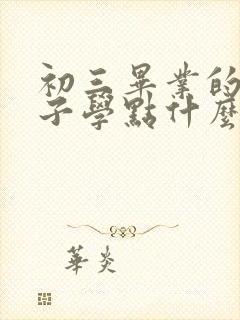 初三畢業的
子學點什麼
華炎